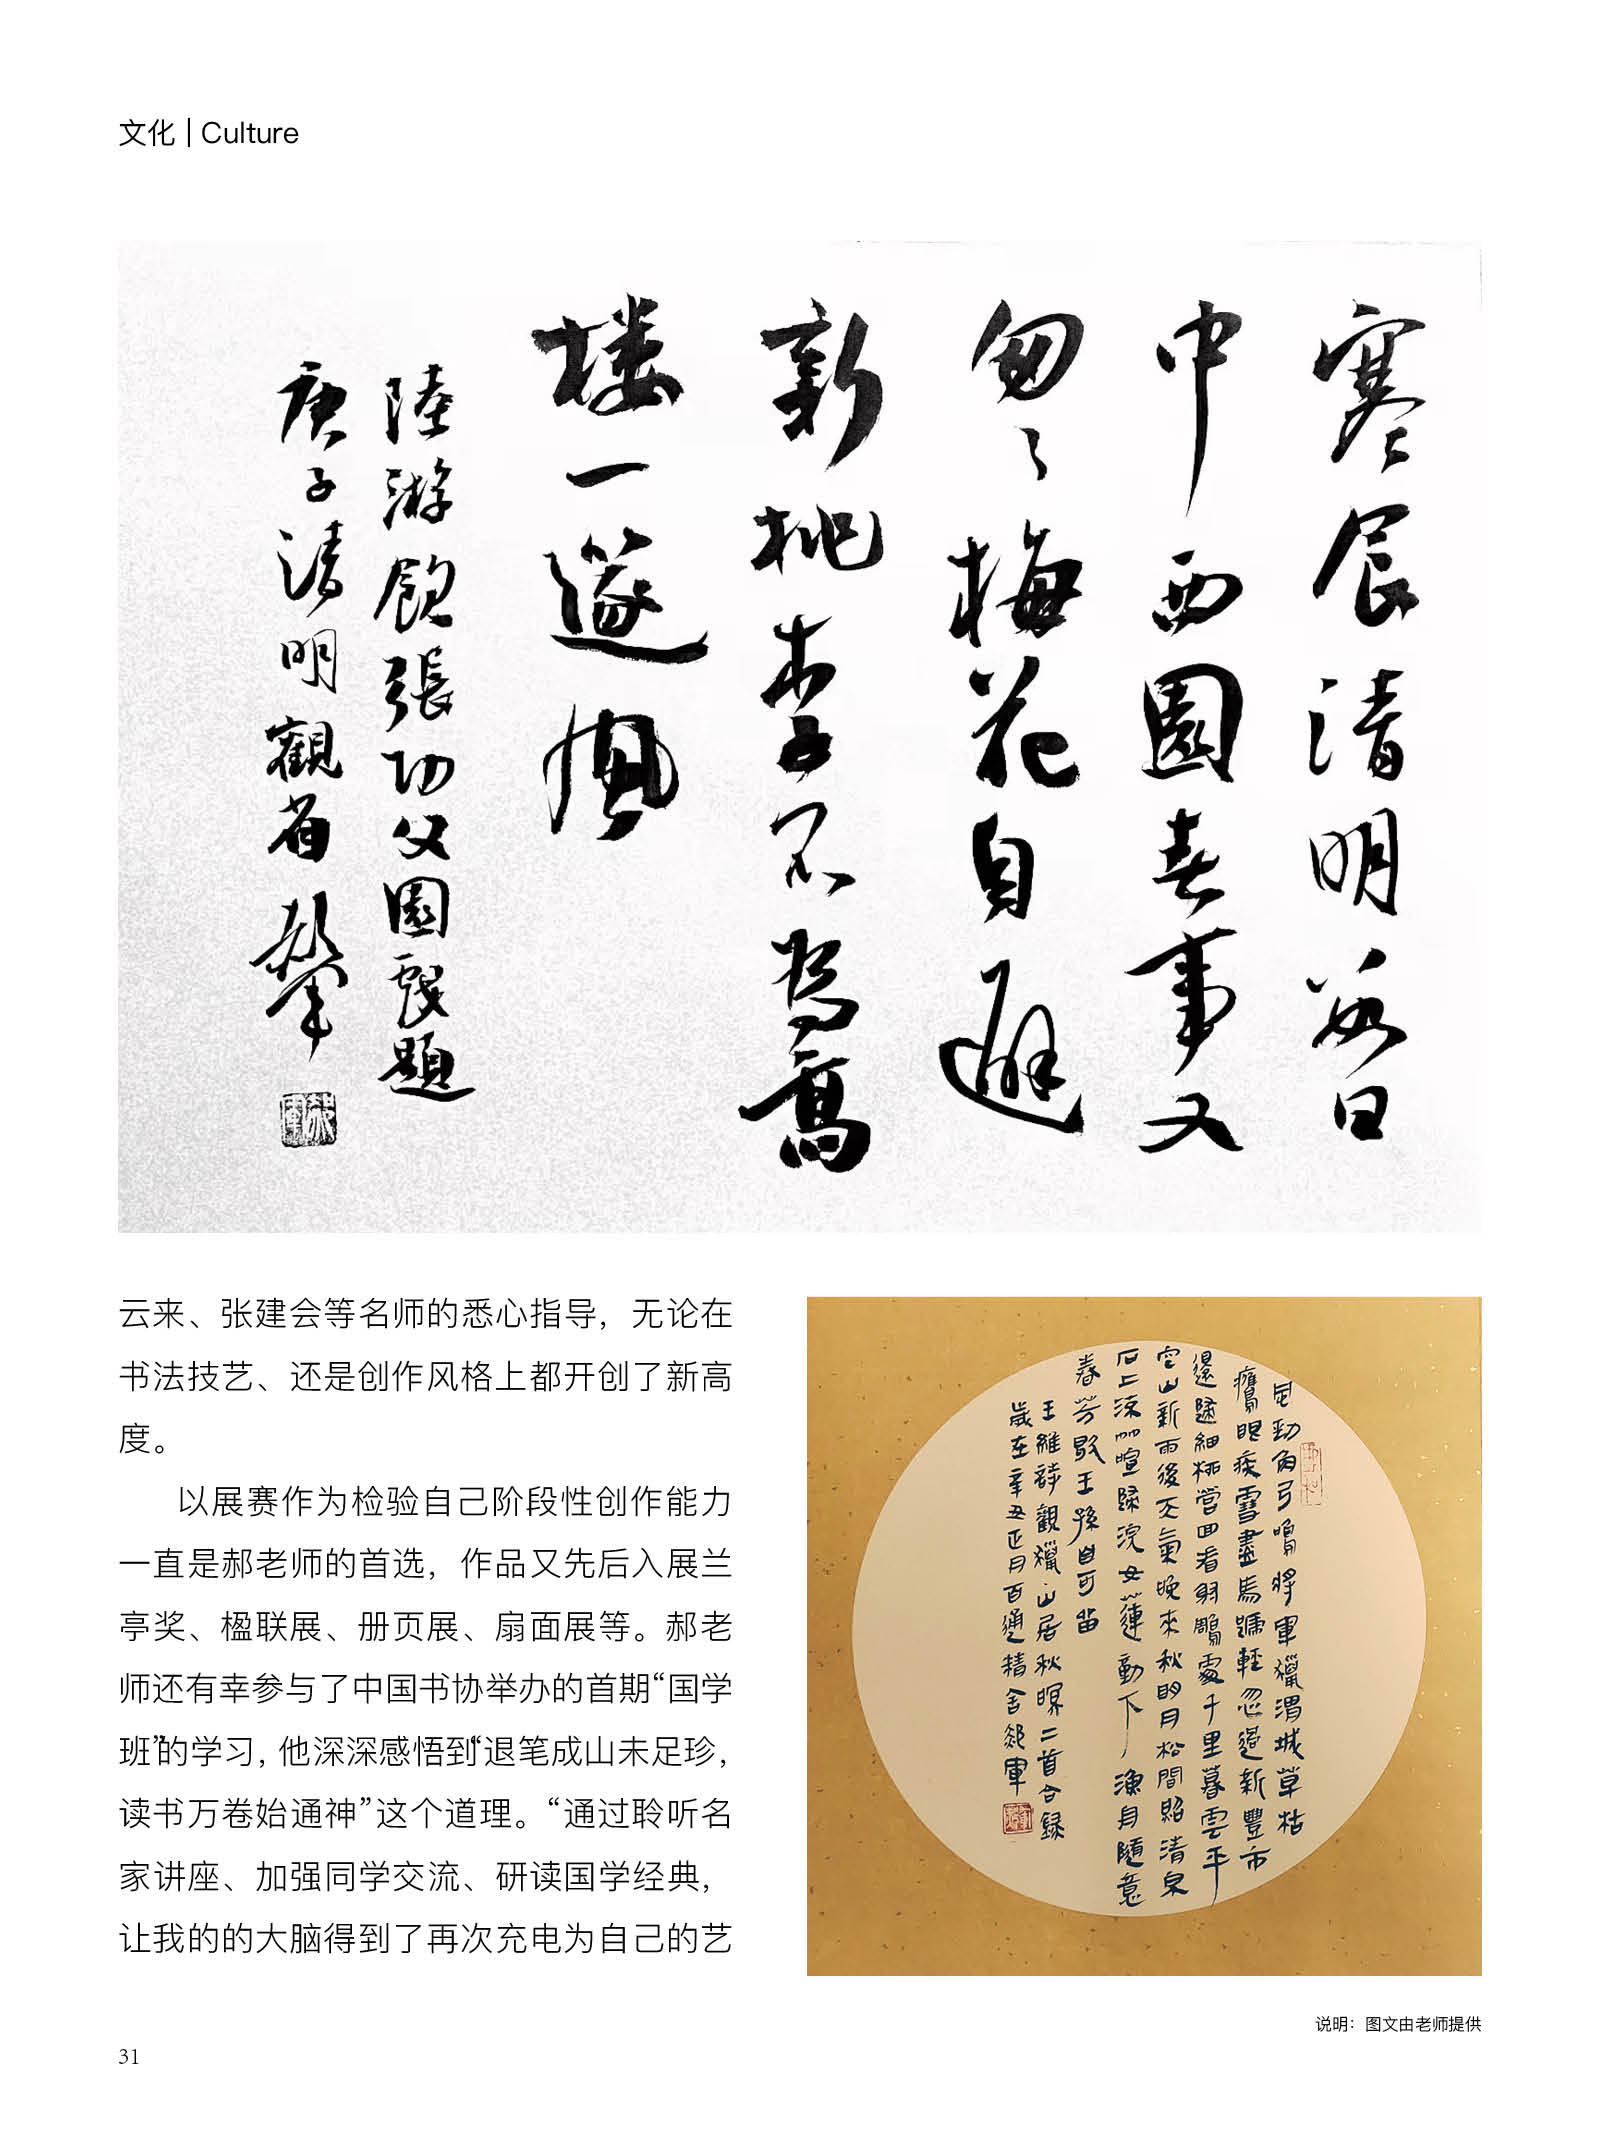 文化 | Culture
寒食清明数日
中西園春事又
匆々梅花自避
新桃李不為高
楼一邃風
陸游飲張功父園戲題
庚子清明觀省
云来、张建会等名师的悉心指导，无论在
书法技艺、还是创作风格上都开创了新高
度。
以展赛作为检验自己阶段性创作能力
一直是郝老师的首选，作品又先后入展兰
亭奖、楹联展、册页展、扇面展等。郝老
师还有幸参与了中国书协举办的首期“国学
班”的学习，他深深感悟到“退笔成山未足珍，
读书万卷始通神”这个道理。“通过聆听名
家讲座、加强同学交流、研读国学经典，
让我的的大脑得到了再次充电为自己的艺
風勁角弓鳴將軍獵渭城草枯
鷹眼疾雪盡馬蹄輕忽過新豐市
還歸細柳營回看射鵰處千里暮雲平
空山新雨後天氣晚來秋明月松間照清泉
石上流竹喧歸浣女蓮動下漁舟隨意
春芳歇王孫自可留
王維詩觀獵山居秋暝二首合録
歲在辛丑正月百通精舍郝軍
说明：图文由老师提供
31